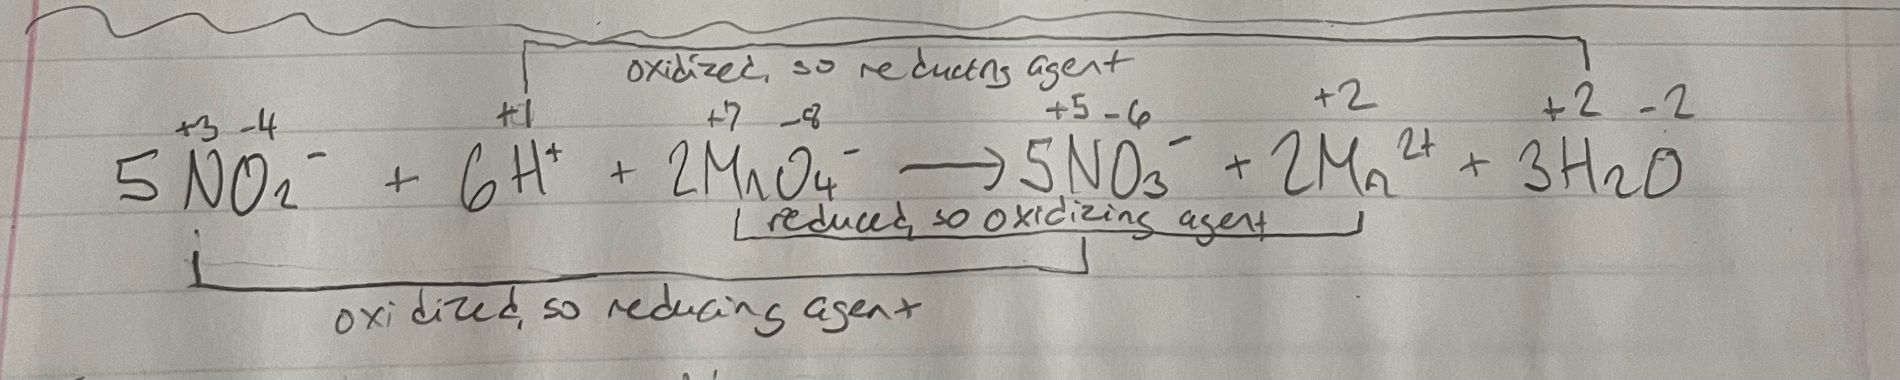 oxidized, so reducing agent
+3 -4 +1 +7 -8 +5 -6 +2 +2 -2
5NO₂⁻ + 6H⁺ + 2MnO₄⁻ → 5NO₃⁻ + 2Mn²⁺ + 3H₂O
reduced, so oxidizing agent
oxidized, so reducing agent